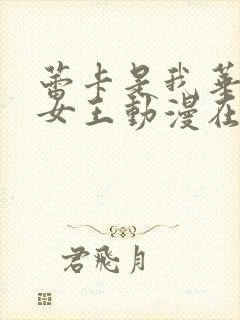 蕾卡是我華
女王動漫在
君飛月